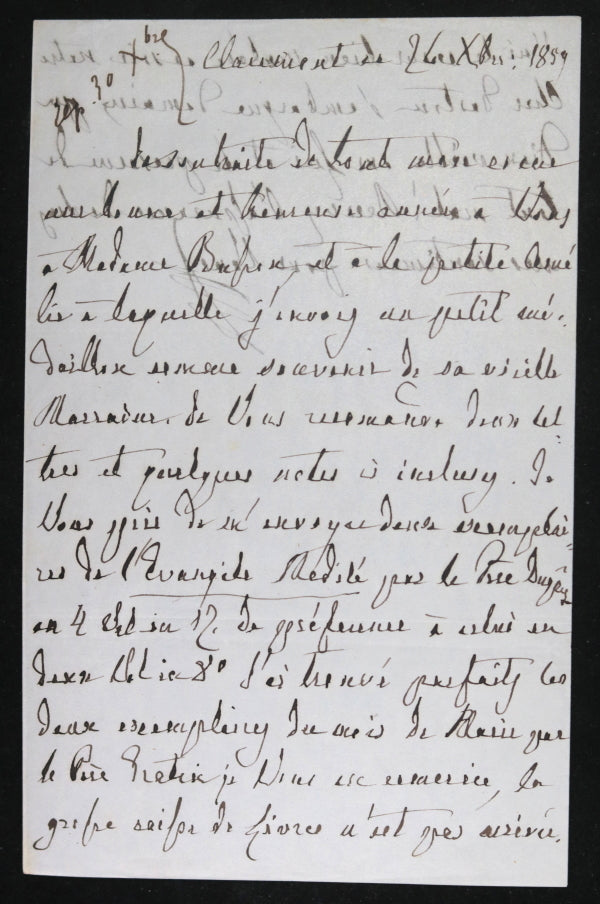 30 Xbre
Claremont ce 26 Xbre. 1859
Je souhaite de tout mon cœur
une bonne et heureuse année à Vous
à Madame et à la petite Amé
lie à laquelle j'envoy un petit mé-
daillon comme souvenir de sa vieille
Marraine. Je Vous recomande deux let
tres et quelques notes ci incluses. Je
Vous prie de m'envoyer deux exemplai-
res de l'Evangile Médité par le Père
en 4 Vol in 12. de préférence à celui en
deux Vol in 8° J'ai trouvé parfaits les
deux exemplaires du mois de Marie par
le Père Gratry je Vous en remercie, la
grosse caisse de Livres n'est pas arrivée.